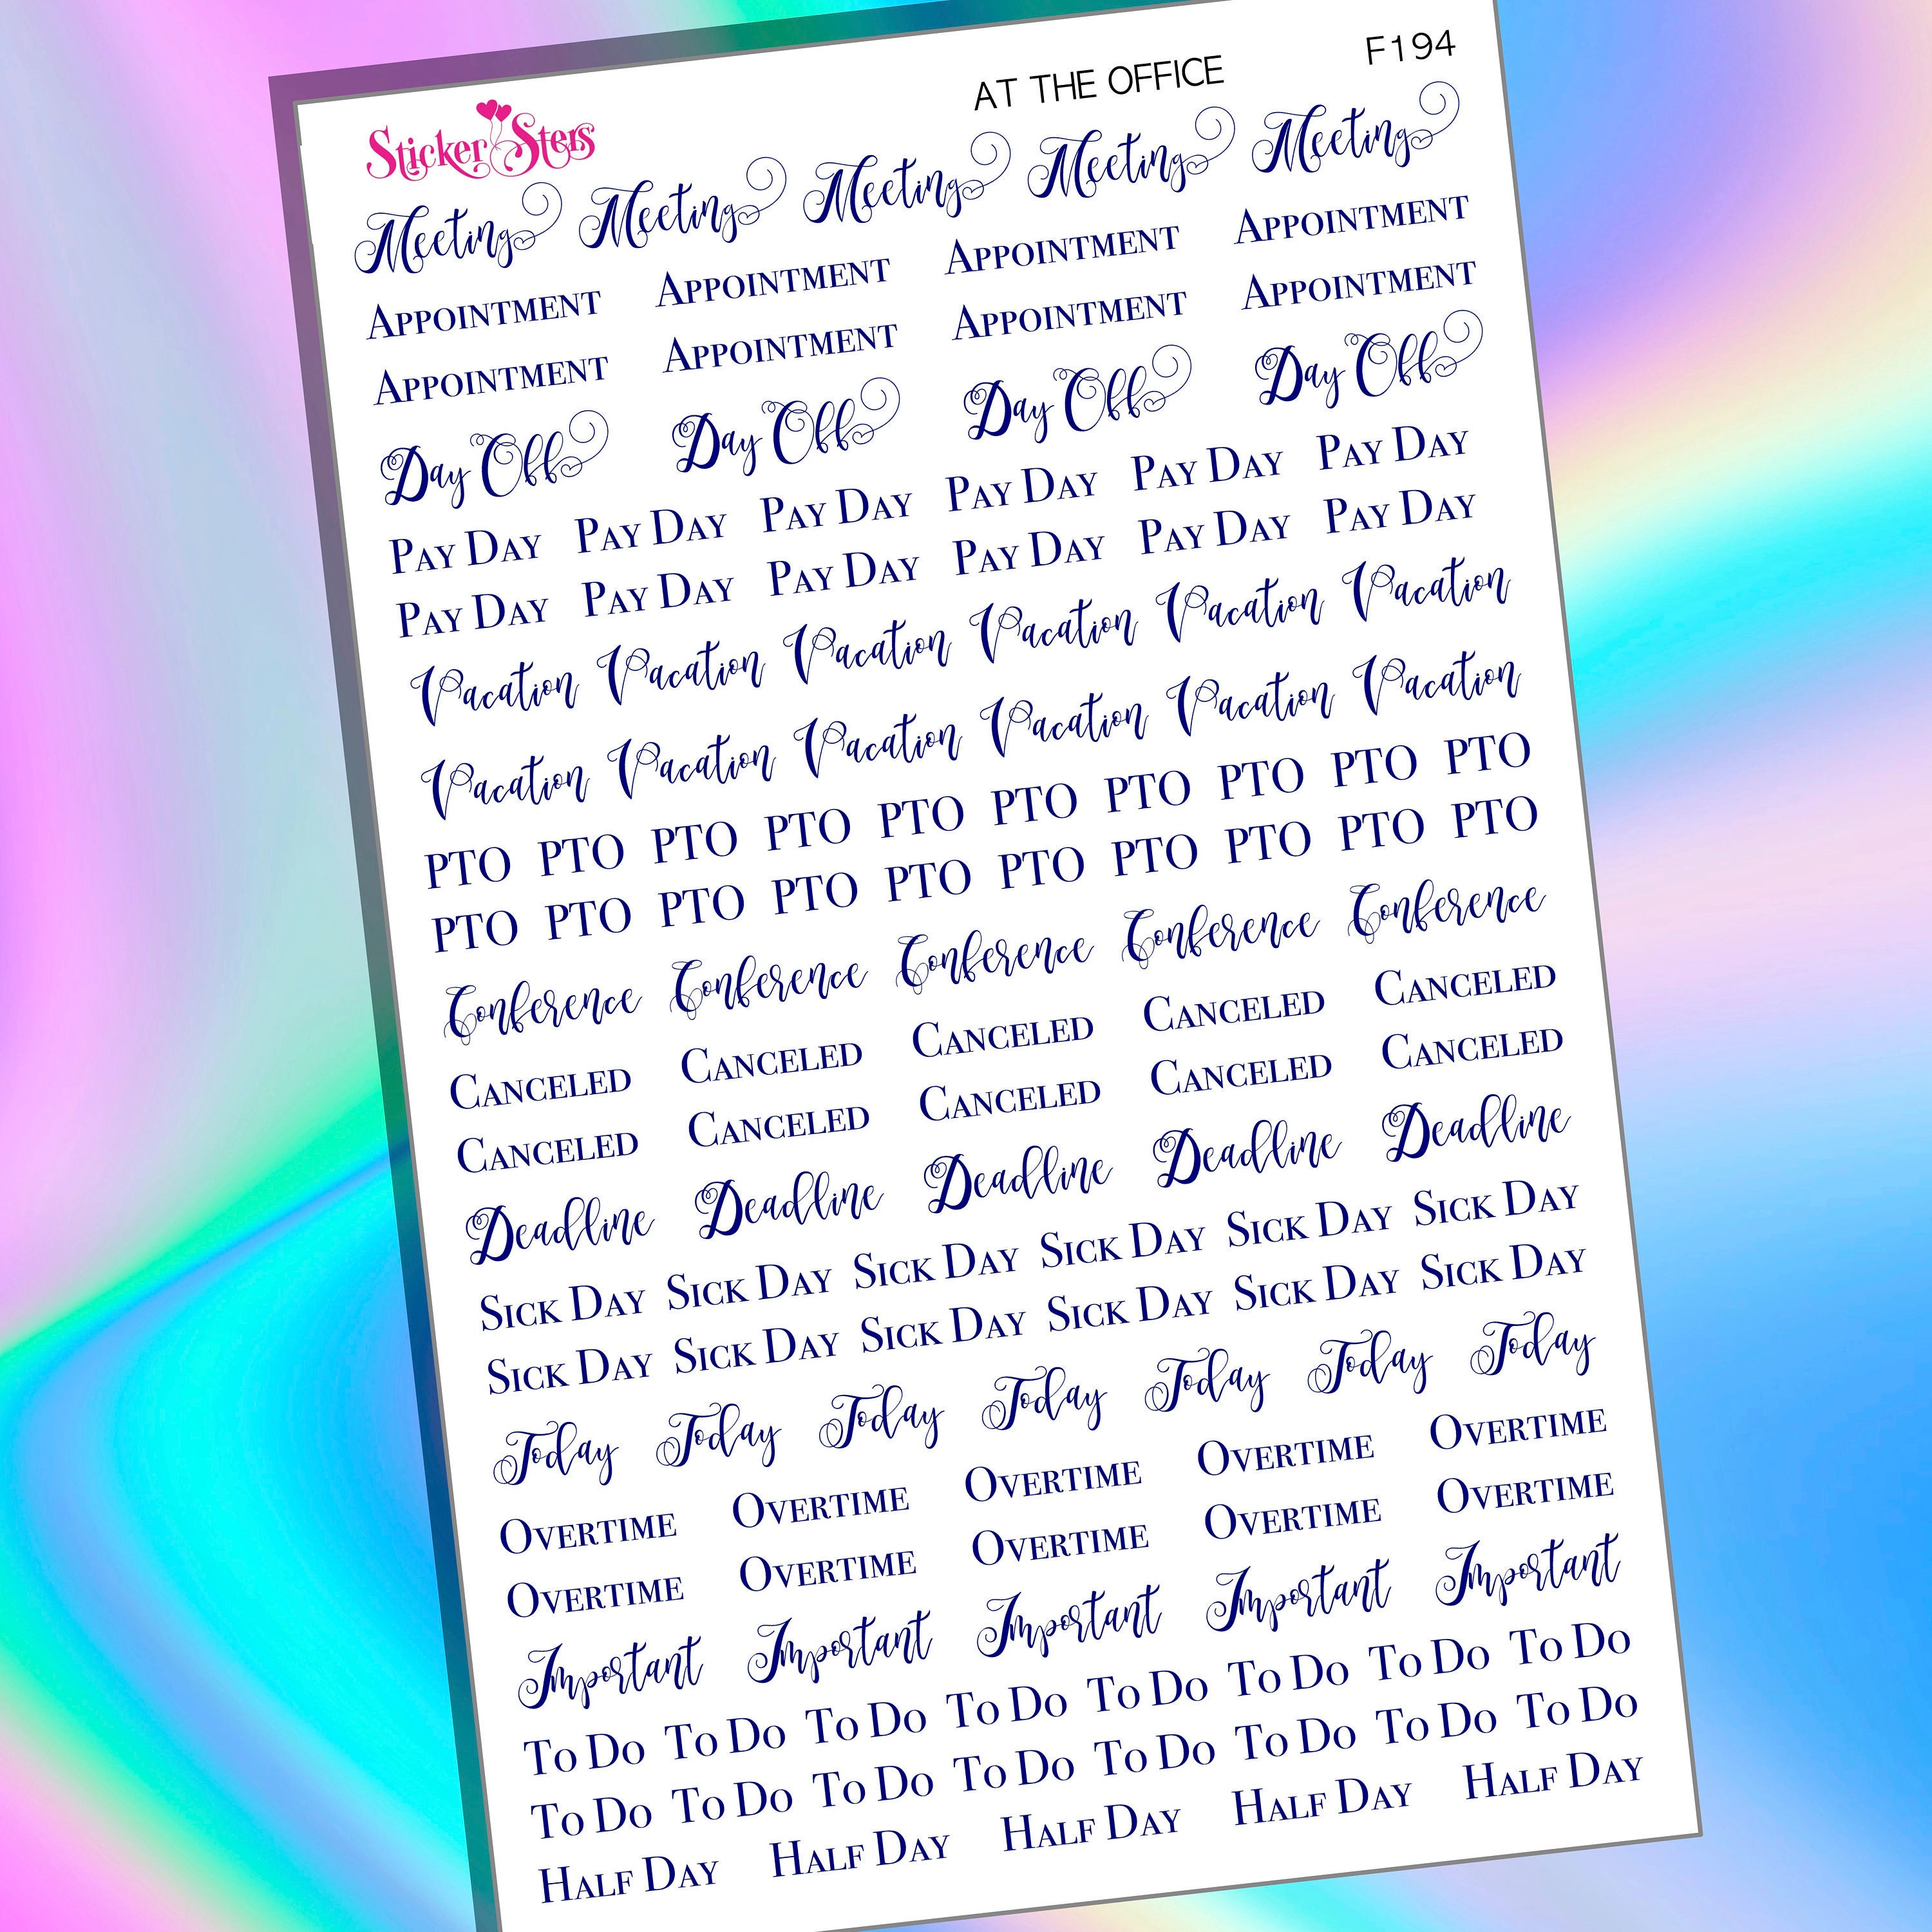 AT THE OFFICE F194
Sticker Sters
Meeting Meeting Meeting Meeting Meeting
APPOINTMENT APPOINTMENT APPOINTMENT APPOINTMENT
APPOINTMENT APPOINTMENT APPOINTMENT APPOINTMENT
Day Off Day Off Day Off Day Off
PAY DAY PAY DAY PAY DAY PAY DAY PAY DAY PAY DAY
PAY DAY PAY DAY PAY DAY PAY DAY PAY DAY PAY DAY
Vacation Vacation Vacation Vacation Vacation Vacation
Vacation Vacation Vacation Vacation Vacation Vacation
PTO PTO PTO PTO PTO PTO PTO PTO PTO PTO
PTO PTO PTO PTO PTO PTO PTO PTO PTO PTO
Conference Conference Conference Conference Conference
CANCELED CANCELED CANCELED CANCELED CANCELED
CANCELED CANCELED CANCELED CANCELED CANCELED
Deadline Deadline Deadline Deadline Deadline
SICK DAY SICK DAY SICK DAY SICK DAY SICK DAY SICK DAY
SICK DAY SICK DAY SICK DAY SICK DAY SICK DAY SICK DAY
Today Today Today Today Today Today Today
OVERTIME OVERTIME OVERTIME OVERTIME OVERTIME
OVERTIME OVERTIME OVERTIME OVERTIME OVERTIME
Important Important Important Important Important
TO DO TO DO TO DO TO DO TO DO TO DO TO DO TO DO
TO DO TO DO TO DO TO DO TO DO TO DO TO DO TO DO
HALF DAY HALF DAY HALF DAY HALF DAY HALF DAY